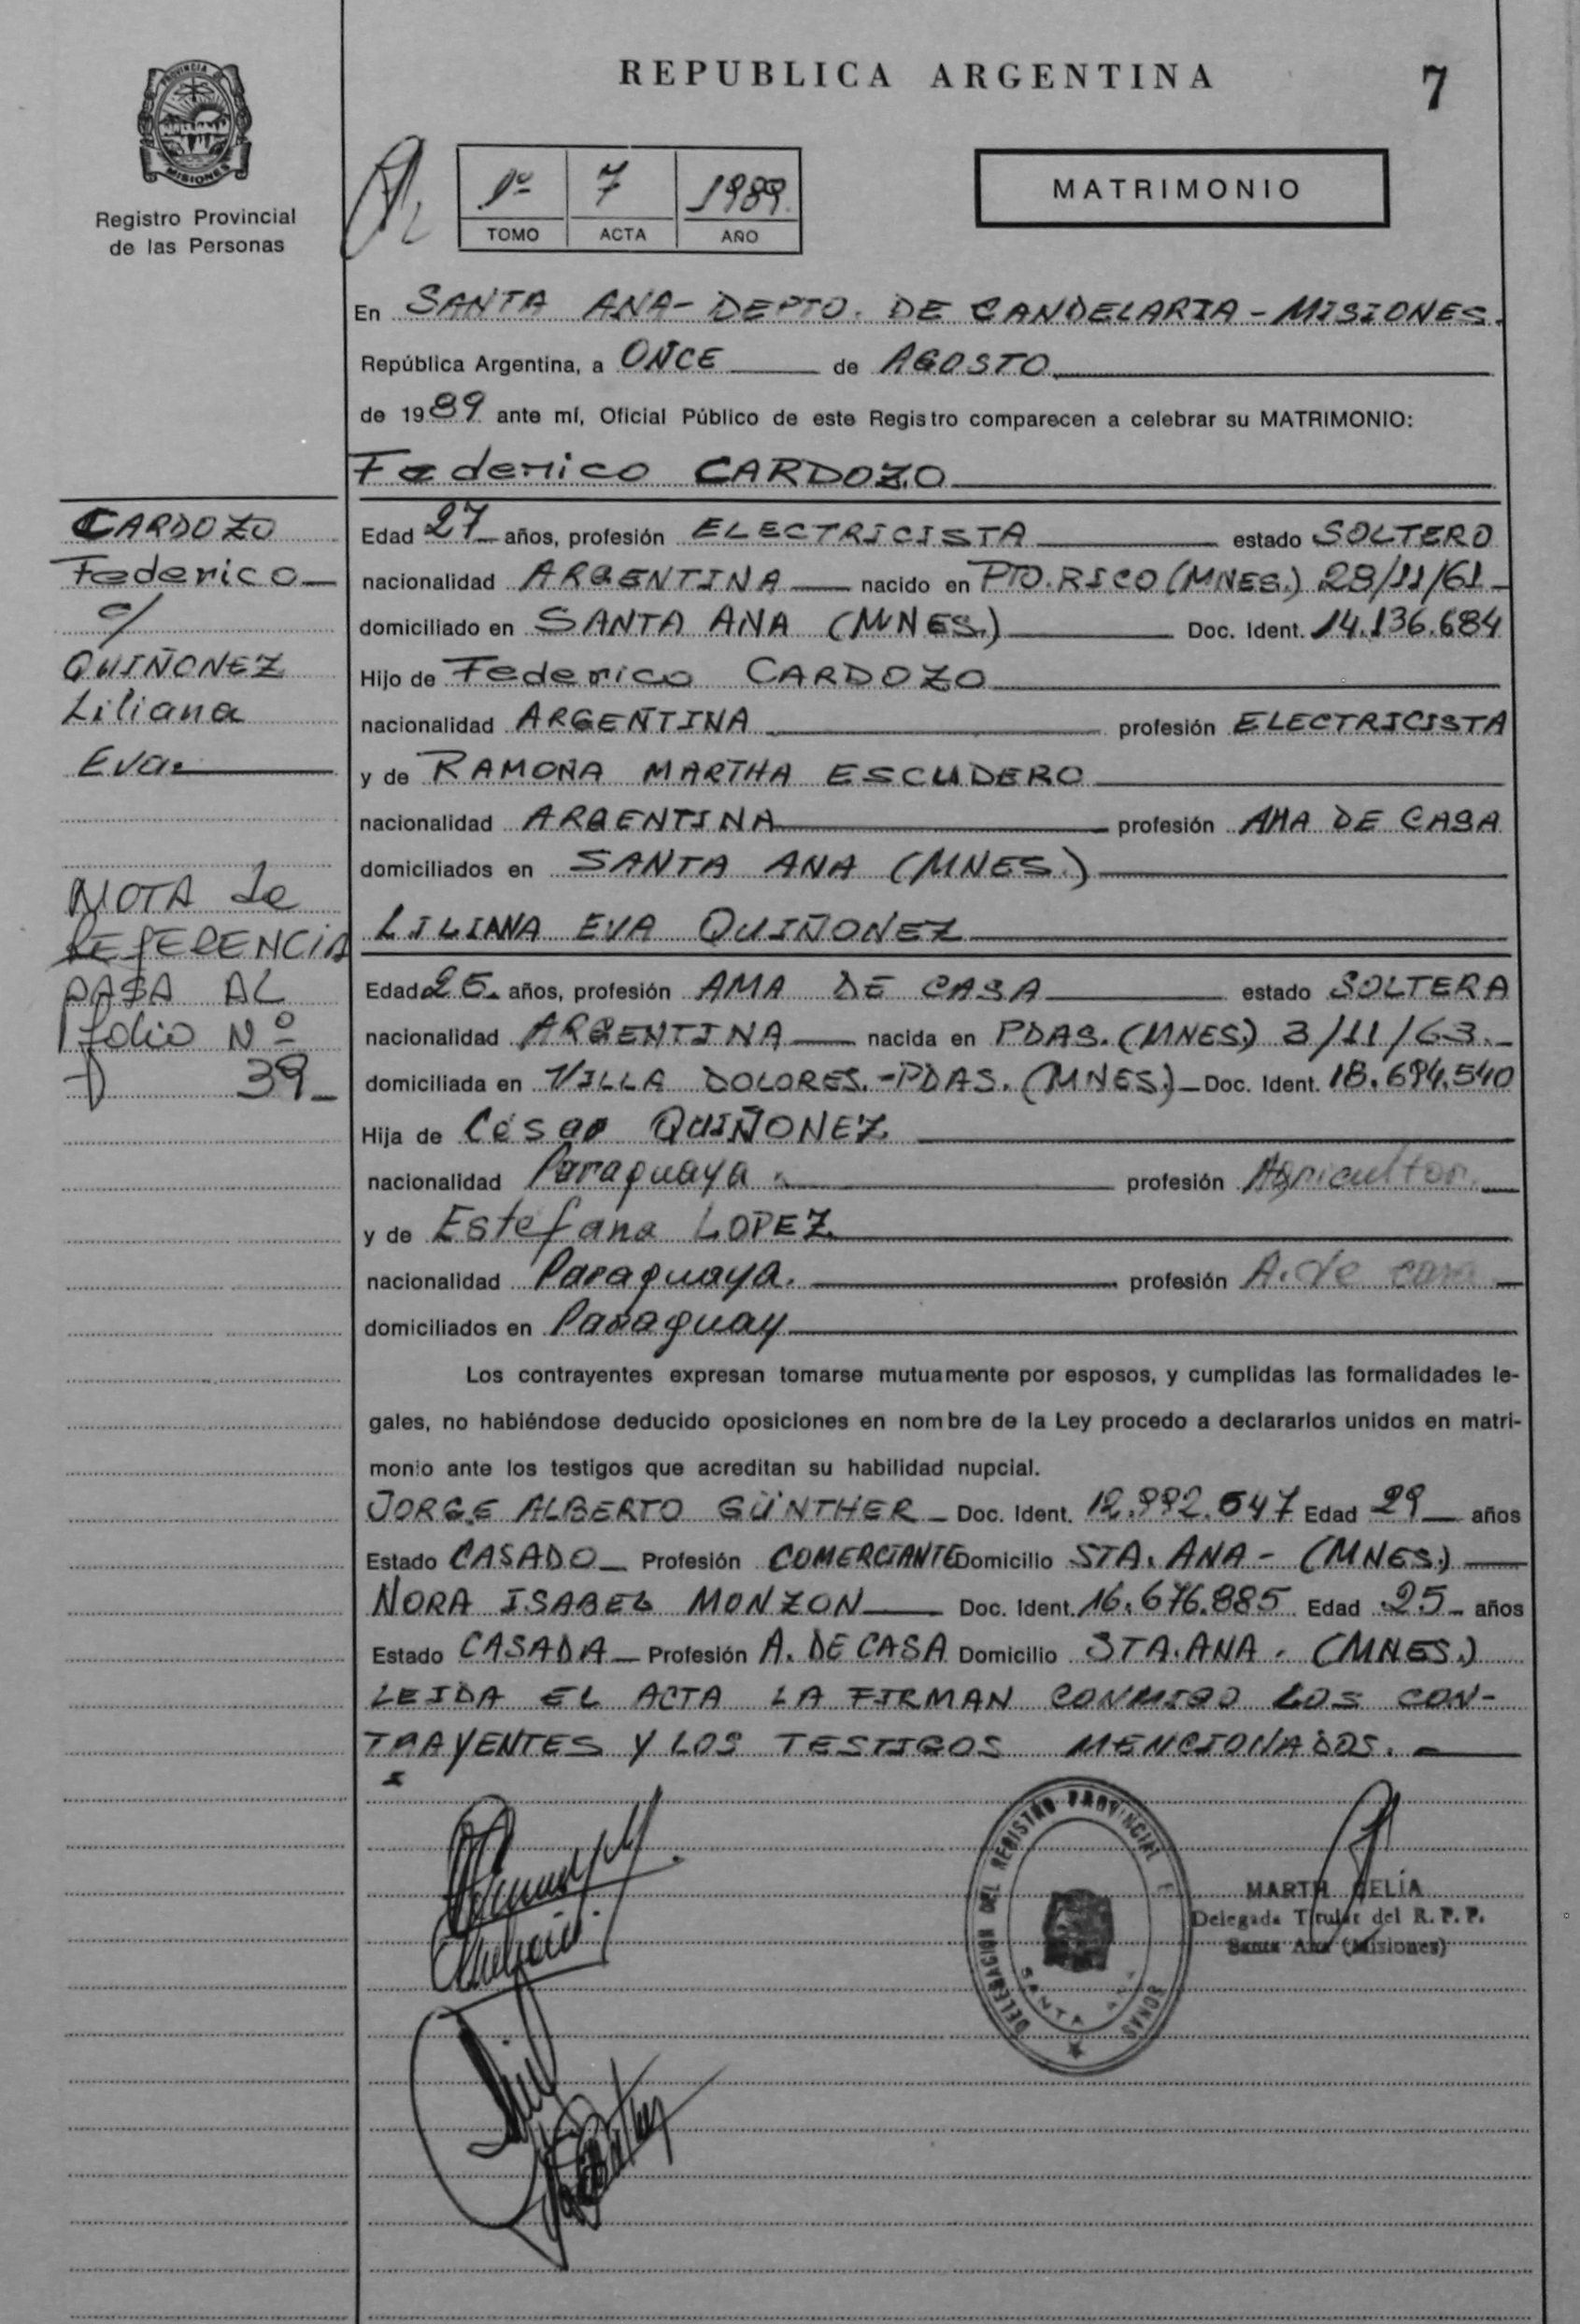 REPUBLICA ARGENTINA
7
PROVINCIA DE
MISIONES
Registro Provincial
de las Personas
1º 7 1989
TOMO ACTA AÑO
MATRIMONIO
En SANTA ANA - DEPTO. DE CANDELARIA - MISIONES.
República Argentina, a ONCE de AGOSTO
de 1989 ante mí, Oficial Público de este Registro comparecen a celebrar su MATRIMONIO:
Federico CARDOZO
Edad 27 años, profesión ELECTRICISTA estado SOLTERO
nacionalidad ARGENTINA nacido en PTO. RICO (MNES.) 28/11/61
domiciliado en SANTA ANA (MNES.) Doc. Ident. 14.136.684
Hijo de Federico CARDOZO
nacionalidad ARGENTINA profesión ELECTRICISTA
y de RAMONA MARTHA ESCUDERO
nacionalidad ARGENTINA profesión AMA DE CASA
domiciliados en SANTA ANA (MNES.)
LILIANA EVA QUIÑONEZ
Edad 25 años, profesión AMA DE CASA estado SOLTERA
nacionalidad ARGENTINA nacida en PDAS. (MNES.) 3/11/63.
domiciliada en VILLA DOLORES. - PDAS. (MNES.) Doc. Ident. 18.694.540
Hija de César QUIÑONEZ
nacionalidad Paraguaya. profesión Agricultor.
y de Estefana LOPEZ
nacionalidad Paraguaya. profesión A. de casa
domiciliados en Paraguay
Los contrayentes expresan tomarse mutuamente por esposos, y cumplidas las formalidades le-
gales, no habiéndose deducido oposiciones en nombre de la Ley procedo a declararlos unidos en matri-
monio ante los testigos que acreditan su habilidad nupcial.
JORGE ALBERTO GÜNTHER Doc. Ident. 12.992.547 Edad 29 años
Estado CASADO Profesión COMERCIANTE Domicilio STA. ANA - (MNES.)
NORA ISABEL MONZON Doc. Ident. 16.676.885 Edad 25 años
Estado CASADA Profesión A. DE CASA Domicilio STA. ANA. (MNES.)
LEIDA EL ACTA LA FIRMAN CONMIGO LOS CON-
TRAYENTES Y LOS TESTIGOS MENCIONADOS.
CARDOZO
Federico
c/
QUIÑONEZ
Liliana
Eva.
NOTA de
REFERENCIA
PASA AL
folio Nº
39
DELEGACION DEL REGISTRO PROVINCIAL
SANTA ANA
MARTH CELIA
Delegada Titular del R. P. P.
Santa Ana (Misiones)